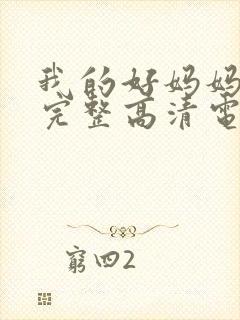 我的好妈妈
完整高清電
窮四2